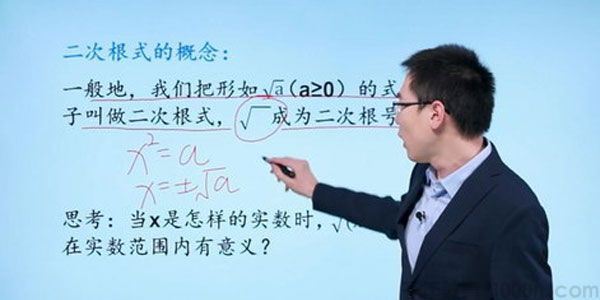 二次根式的概念：
一般地，我们把形如√a（a≥0）的式
子叫做二次根式，√ 成为二次根号
x²=a
x=±√a
思考：当x是怎样的实数时，√(
在实数范围内有意义？